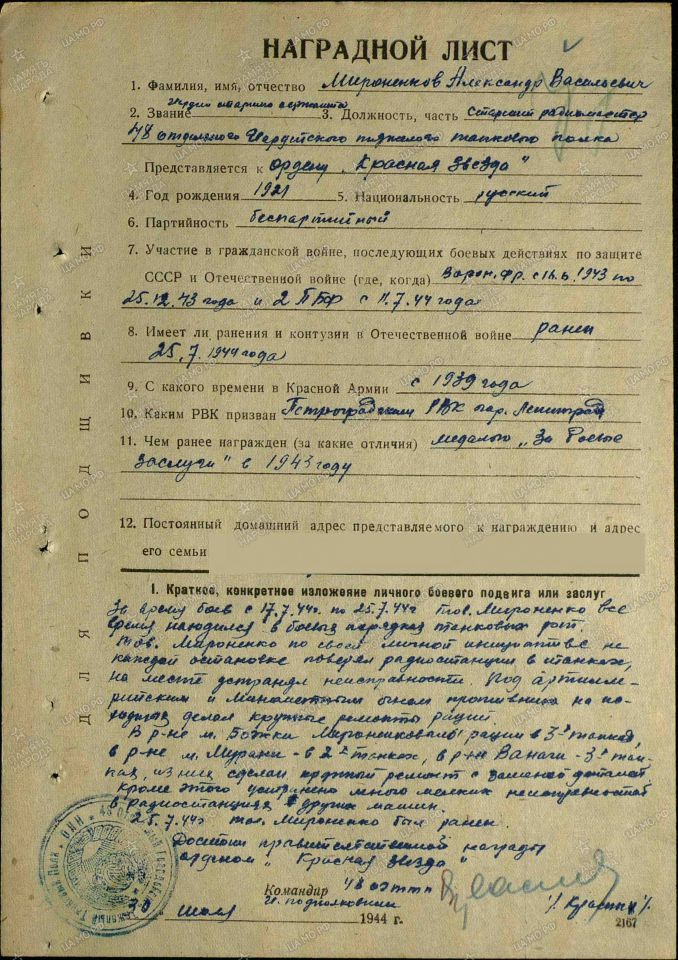 НАГРАДНОЙ ЛИСТ
1. Фамилия, имя, отчество Мироненков Александр Васильевич
гвардии старшина
2. Звание 3. Должность, часть Старший радиомастер
48 отдельного Гвардейского тяжелого танкового полка
Представляется к ордену „Красная звезда"
4. Год рождения 1921 5. Национальность русский
6. Партийность беспартийный
7. Участие в гражданской войне, последующих боевых действиях по защите
СССР и Отечественной войне (где, когда) Ворон. Фр. с 1943 по
25.12.43 года и 2 ПБФ с 11.7.44 года
8. Имеет ли ранения и контузии в Отечественной войне ранен
25.7.1944 года
9. С какого времени в Красной Армии с 1939 года
10. Каким РВК призван Петроградским РВК гор. Ленинград
11. Чем ранее награжден (за какие отличия) медалью „За боевые
заслуги" в 1943 году
12. Постоянный домашний адрес представляемого к награждению и адрес
его семьи
I. Краткое, конкретное изложение личного боевого подвига или заслуг
За время боев с 17.7.44г. по 25.7.44г тов. Мироненко все
время находился в боевых порядках танковых рот.
Тов. Мироненко по своей личной инициативе на
каждой остановке поверял радиостанции в танках,
на месте устранял неисправности. Под артилле-
рийским и минометным огнем противника на
делал крупные ремонты раций.
В р-не м. Божки рации в 3х танках,
в р-не м. Мурани - в 2х танках, в р-не Ванаги - 3х тан-
ках, из них сделал крупный ремонт с заменой деталей.
Кроме этого устранено много мелких неисправностей
в радиостанциях других машин.
25.7.44г тов. Мироненко был ранен
Достоин правительственной награды
орденом „Красная звезда"
Командир 48 оттп
гв. подполковник
30 июля 1944 г.
2167
ДЛЯ ПОДШИВКИ
ПАМЯТЬ НАРОДА
ЦАМО.РФ